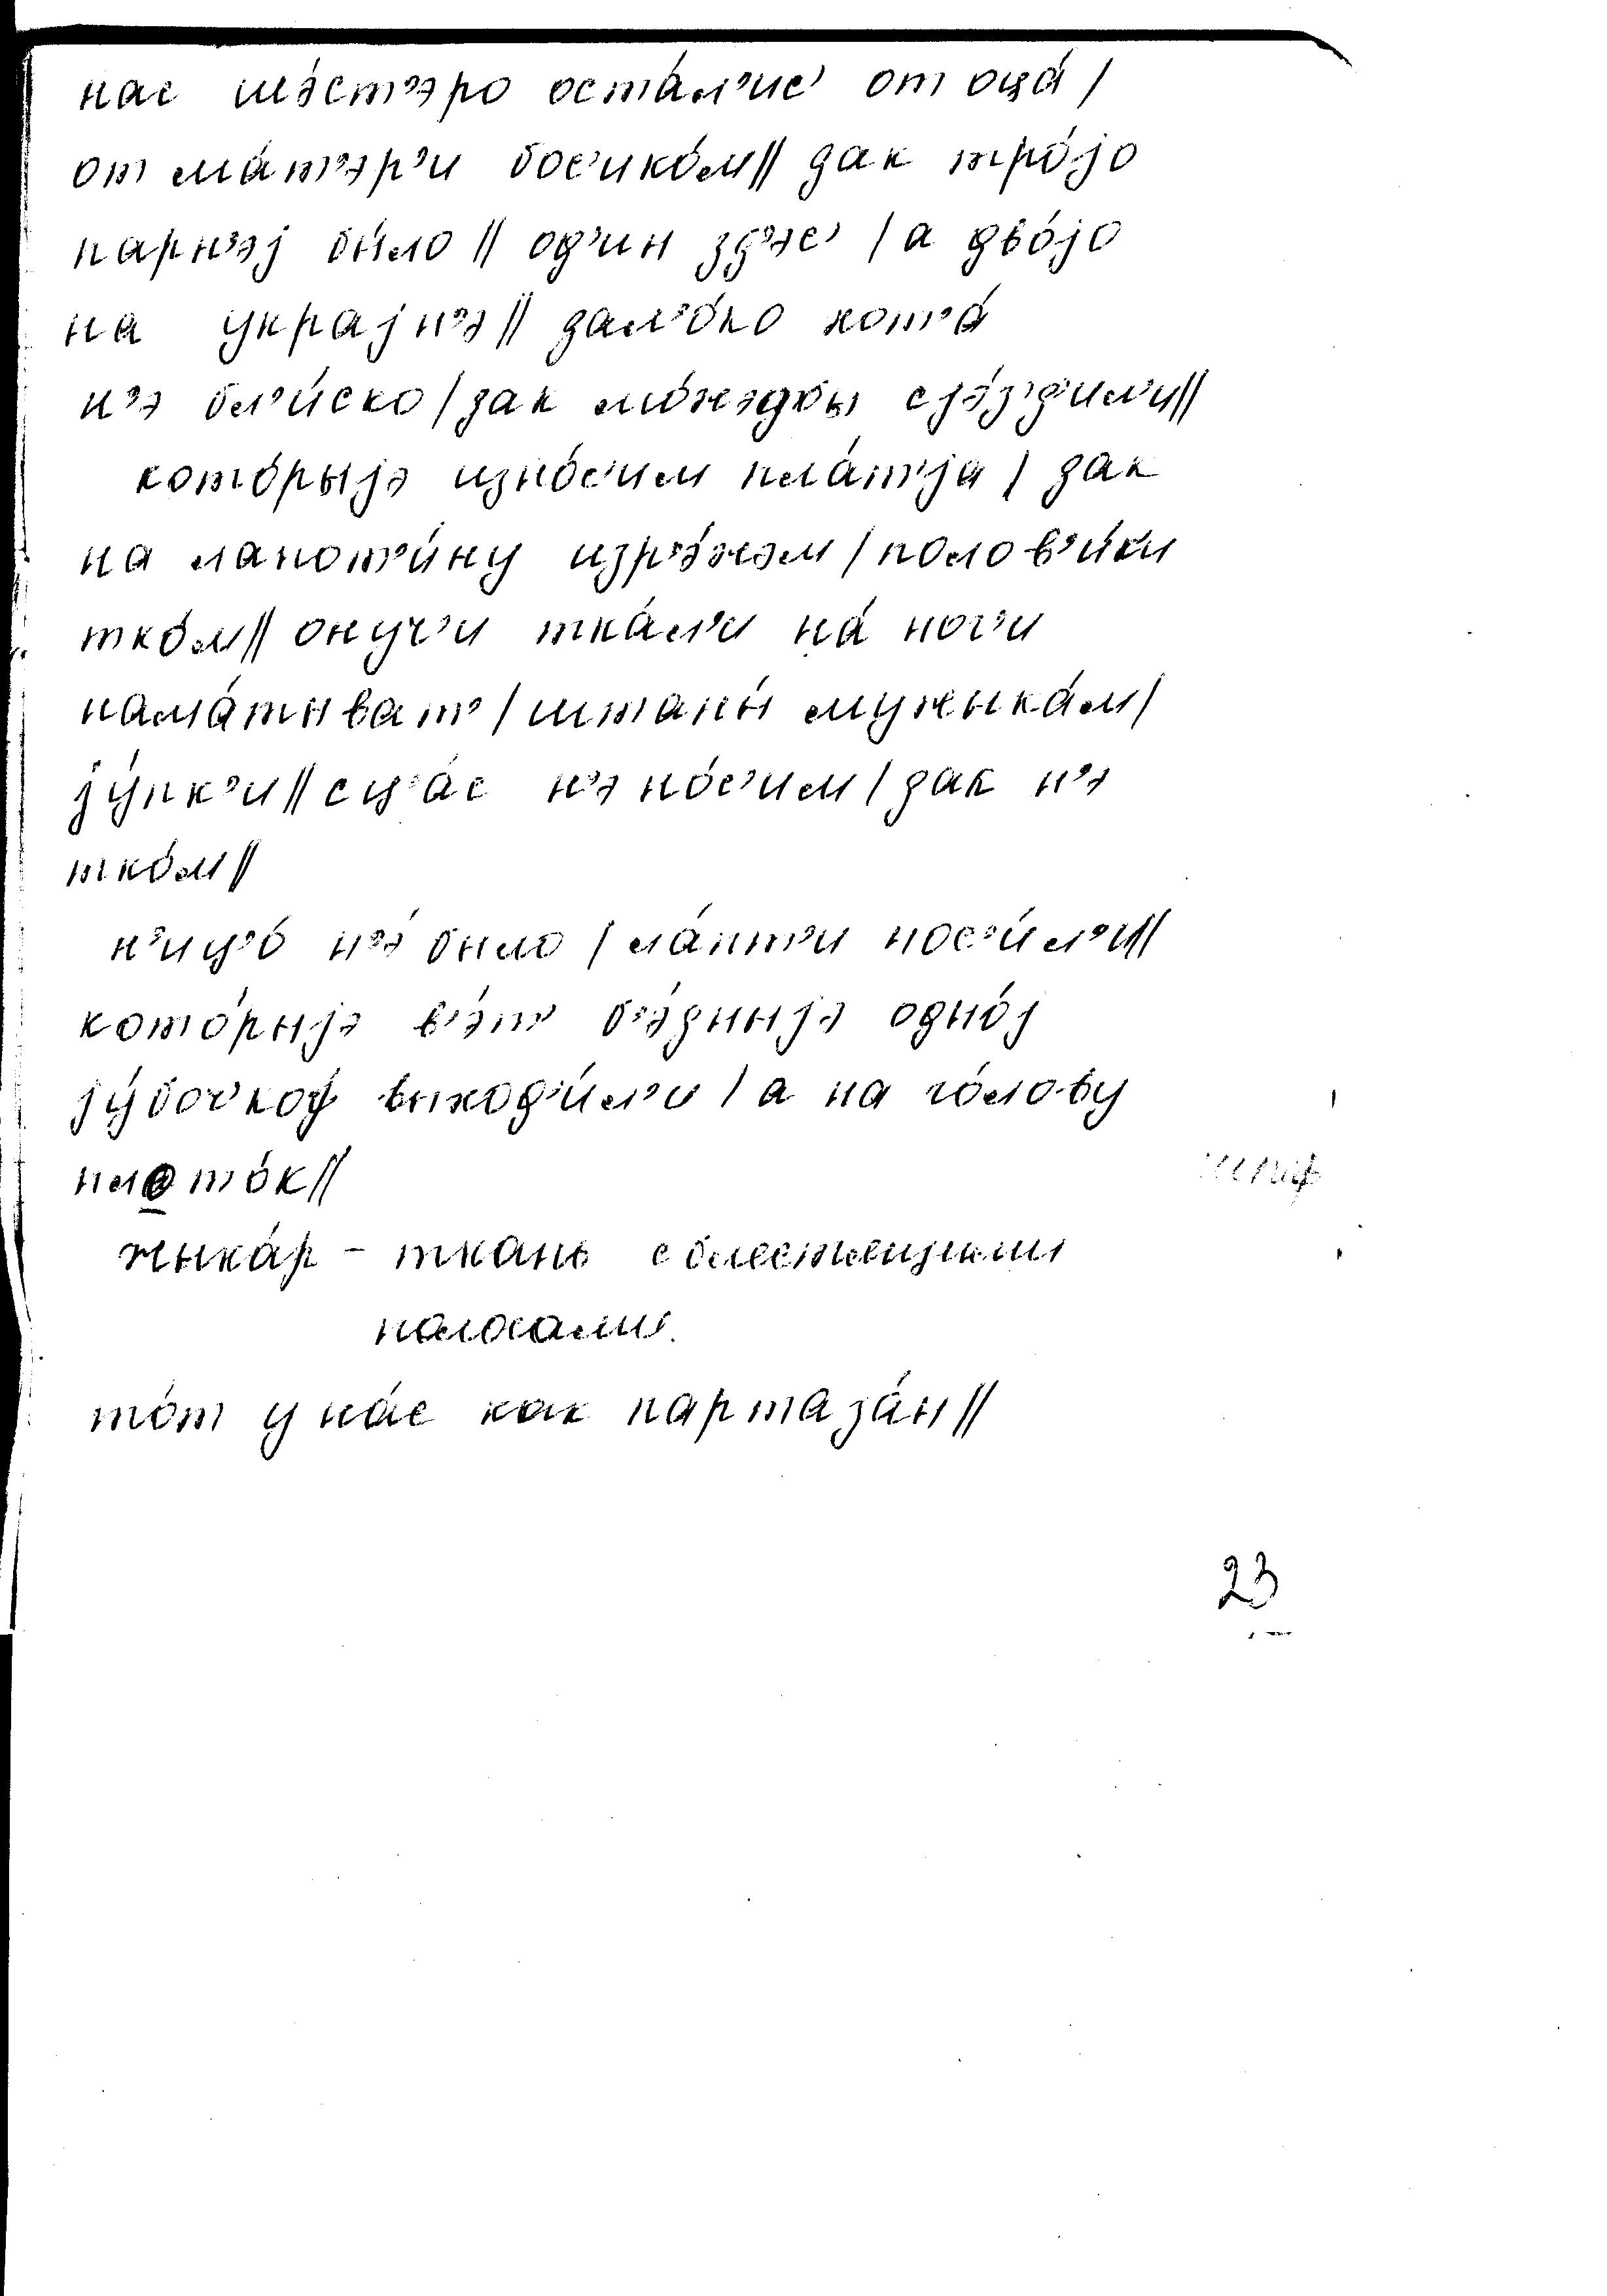 нас шэ́ст'эро оста́л'ис' от оца́ /
от ма́т'эр'и бос'ико́м // дак тро́јо
парн'эј бы́ло // од'ин зд'эс' / а дво́јо
на украјн'э // дал'о́ко хот'а́
н'э бл'и́ско / дак мо́жэдбы сјэ́з'д'ил'и //
кото́рыјэ изно́с'им пла́т'ја / дак
на лапот'и́ну изр'э́жэм / полов'ики́
тко́м // онуч'и тка́л'и на́ ног'и
нама́тыват' / штаны́ мужыка́м /
јý́пк'и // сц'а́с н'э но́с'им / дак н'э
тко́м //
н'иц'о́ н'э́ было / ла́пт'и нос'и́л'и //
кото́рыјэ в'э́т' б'э́дныјэ одно́ј
јý́боч'кој выход'и́л'и / а на го́лову
плато́к //
жыка́р - ткань с блестящими
полосами.
то́т у на́с как партаза́н //
23